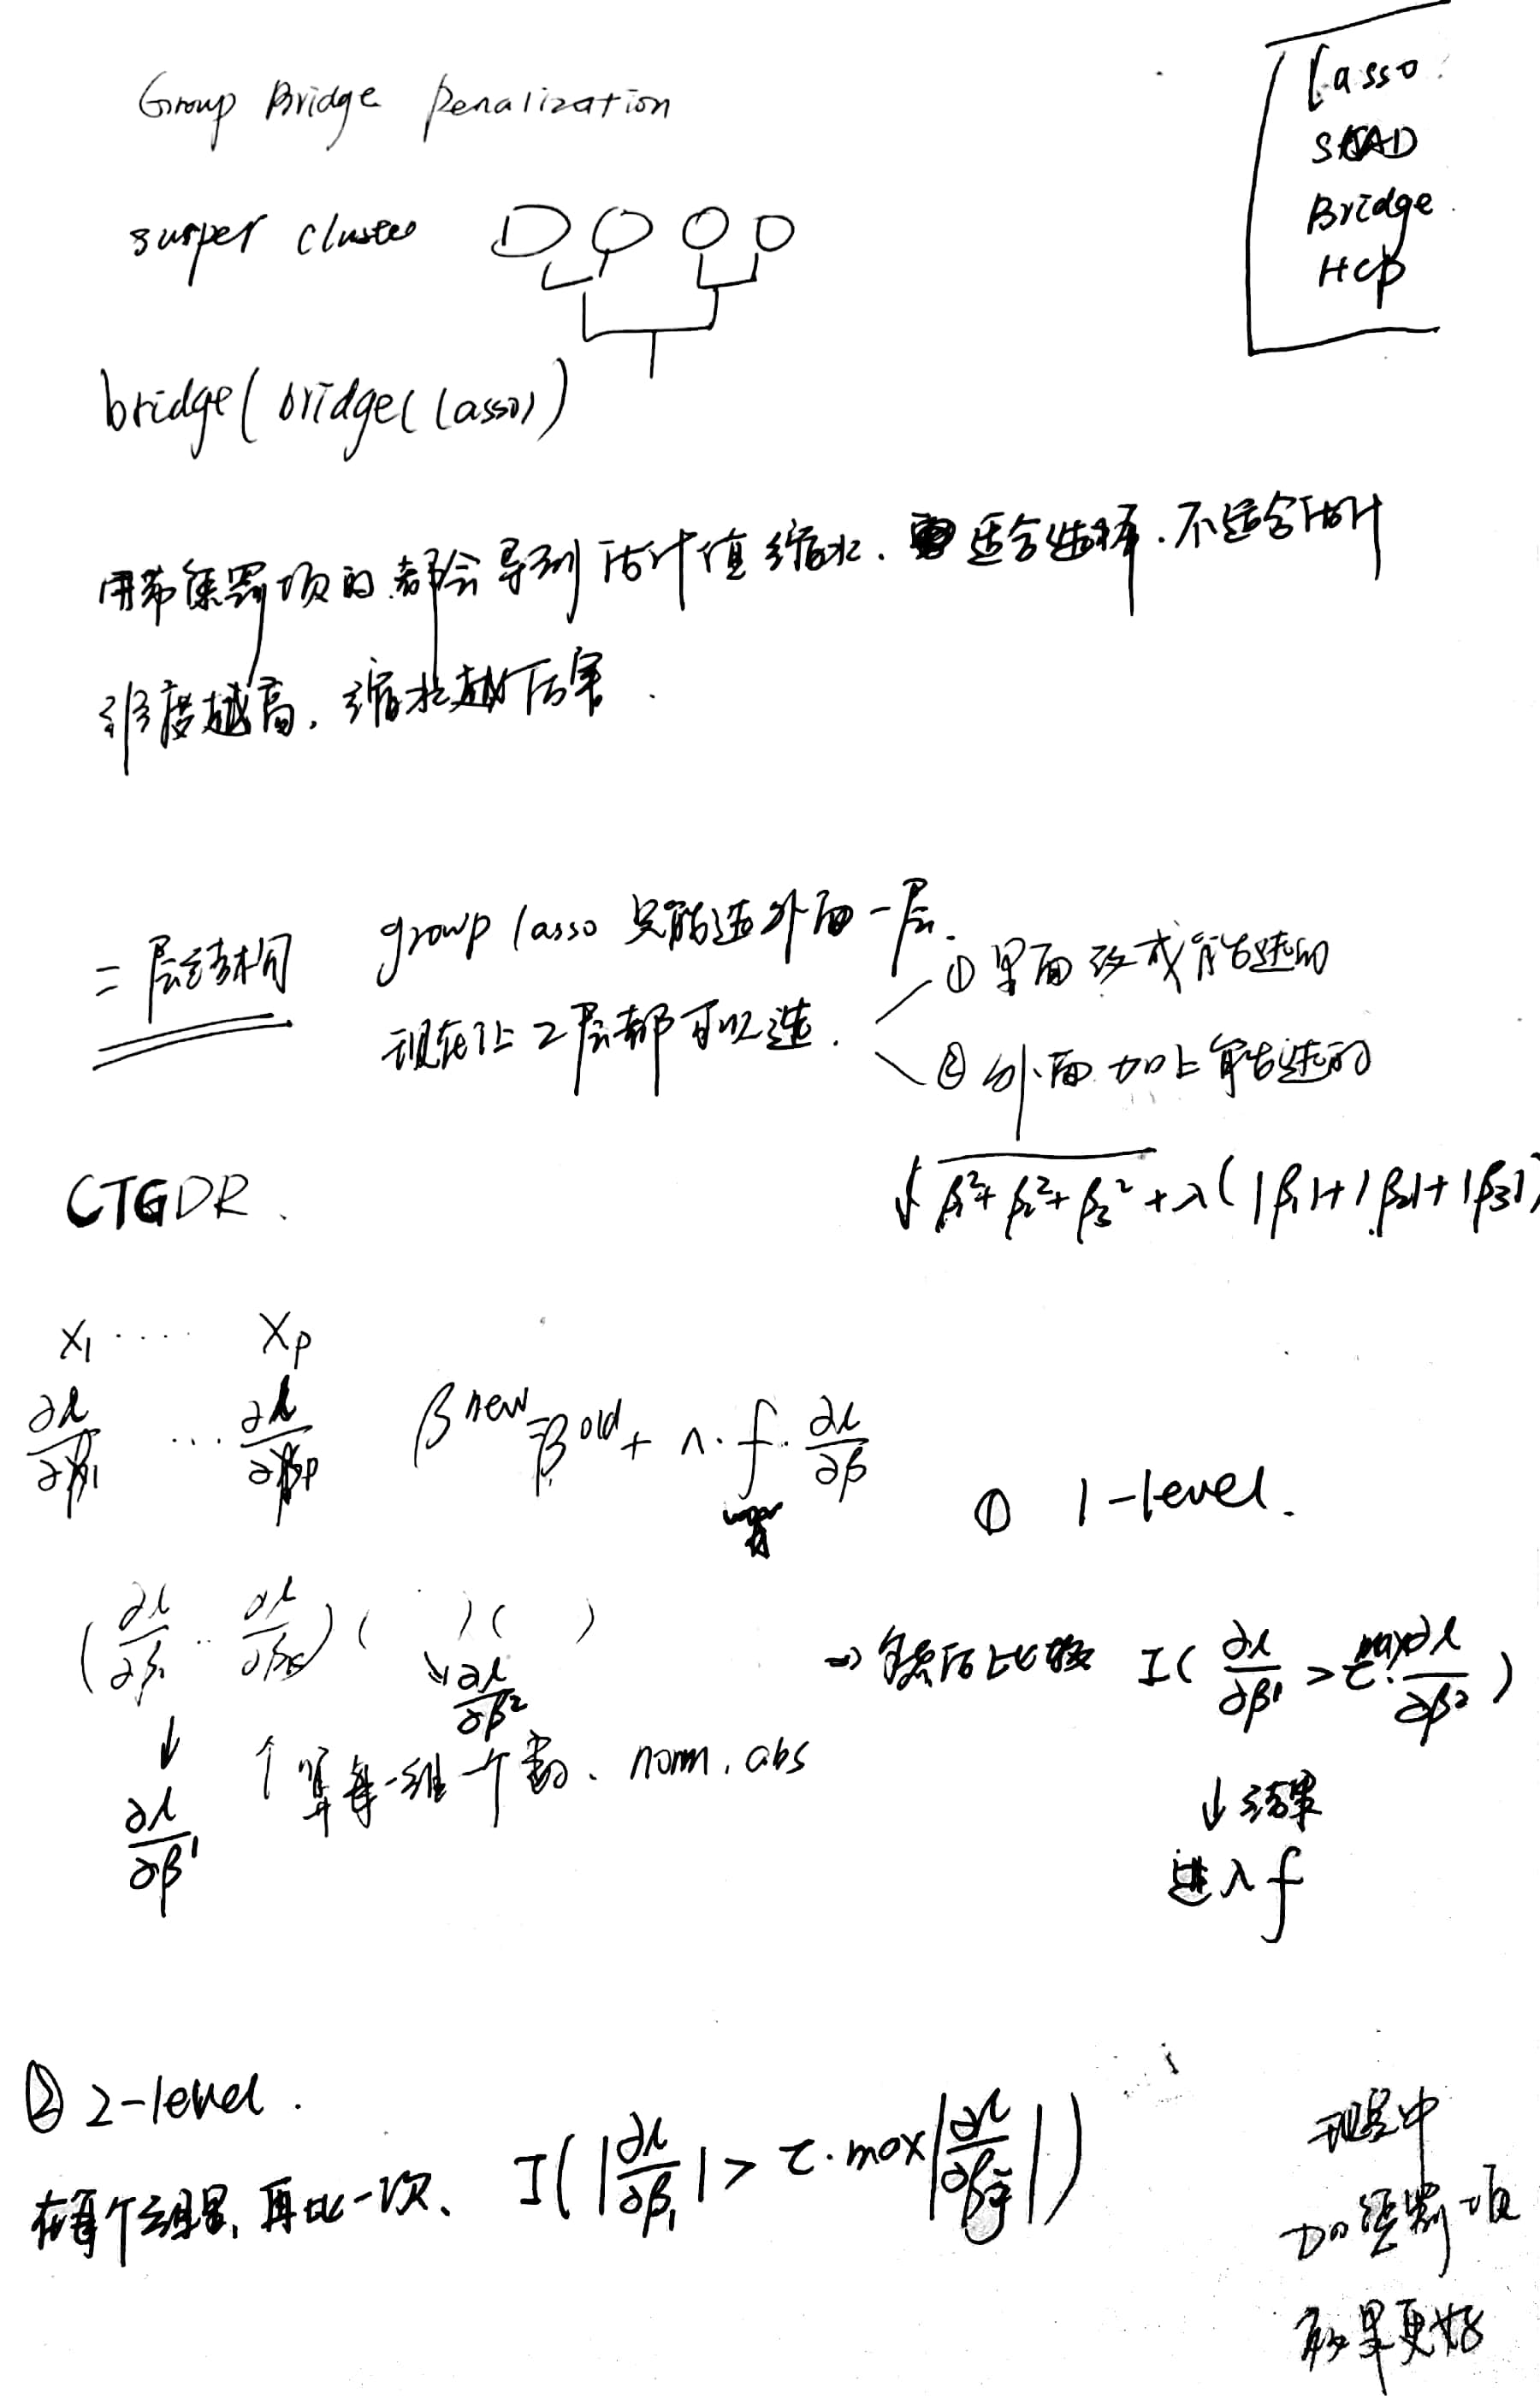 Group Bridge Penalization
Lasso
SCAD
Bridge
Hcp
surper cluster
bridge(bridge(lasso))
用带惩罚项的都会导到估计值缩水.适合选择.不适合估计
维度越高,缩水越厉害.
二层结构
group lasso 只能选外面一层.
现在让2层都可以选.
① 里面改成能选的
② 外面加上能选的
√(β₁²+β₂²+β₃²) + λ(|β₁|+|β₂|+|β₃|)
CTGDR.
X₁ ····· Xp
∂l/∂β₁ ... ∂l/∂βp
β^new = β^old + n·f·∂l/∂β
① 1-level.
(∂l/∂β₁ .. ∂l/∂β) ( ) ( )
↘ ∂l/∂β²
↓ ∂l/∂β¹
↑ 算每一组一个数. norm. abs
→ 然后比较 I(∂l/∂β¹ > τ·max ∂l/∂β²)
↓ 结果
进入 f
② 2-level.
在每个组里,再比一次. I(|∂l/∂β₁| > τ·max|∂l/∂βj|)
现实中
加惩罚项
效果更好